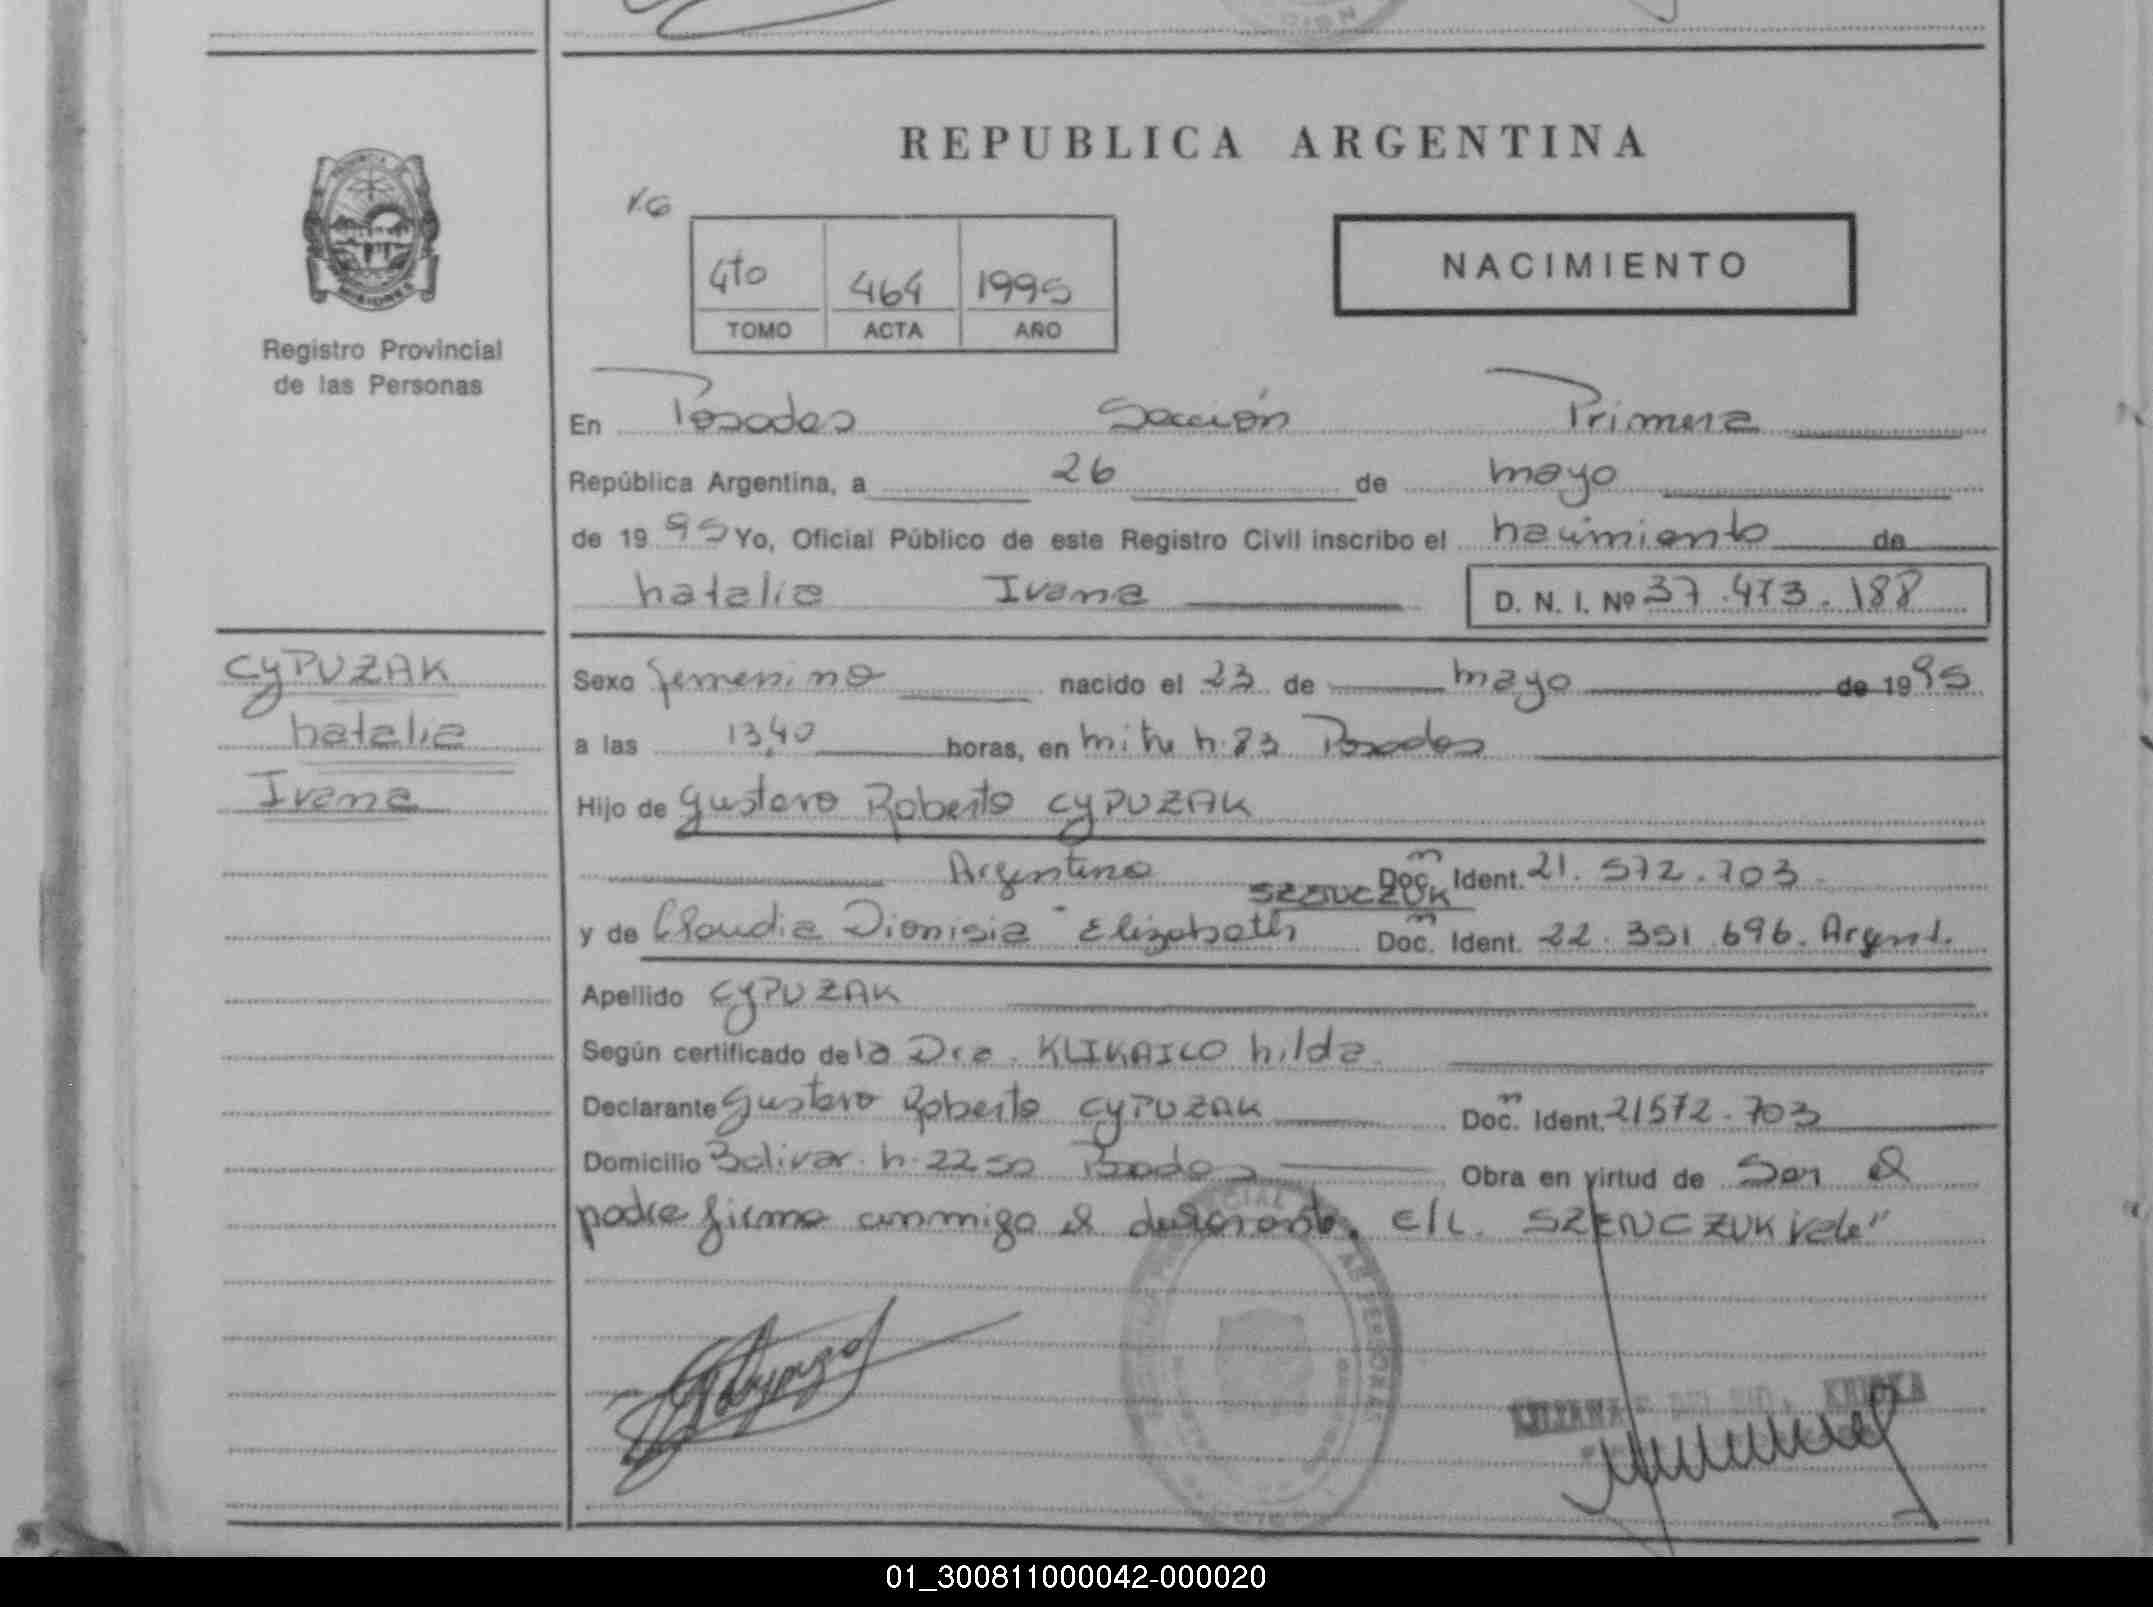 REPUBLICA ARGENTINA
NACIMIENTO
4to 464 1995
TOMO ACTA AÑO
Registro Provincial
de las Personas
En Posadas Sección Primera
República Argentina, a 26 de mayo
de 1995 Yo, Oficial Público de este Registro Civil inscribo el nacimiento de
Natalia Ivana D. N. I. Nº 37.473.188
CYPUZAK
Natalia
Ivana
Sexo femenino nacido el 23 de mayo de 1995
a las 13,40 horas, en Mitre N·83 Posadas
Hijo de Gustavo Roberto CYPUZAK
Argentino Doc. Ident. 21.572.703
SZENCZUK
y de Claudia Dionisia Elizabeth Doc. Ident. 22.351.696. Argent.
Apellido CYPUZAK
Según certificado de la Dra. Hilda
Declarante Gustavo Roberto CYPUZAK Doc. Ident. 21572.703
Domicilio Bolivar N·2250 Posadas Obra en virtud de Ser el
padre firma conmigo el declarante. E/L. SZENCZUK vale"
01_300811000042-000020